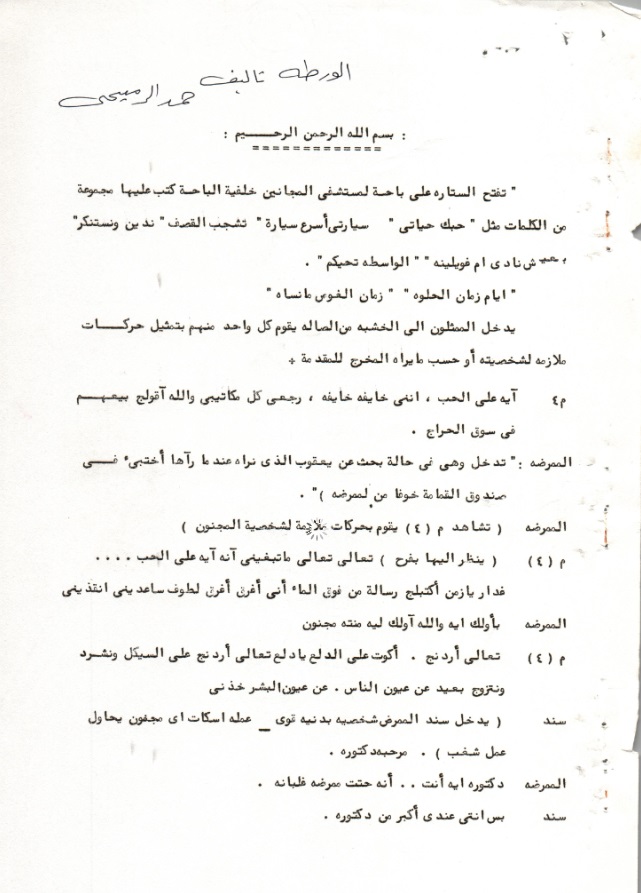 الورطه تاليف حمد الرميحى
: بسم الله الرحمن الرحـــــيم :
=============
" تفتح الستاره على باحة لمستشفى المجانين خلفية الباحة كتب عليها مجموعة
من الكلمات مثل " حبك حياتى " سيارتى أسرع سيارة " تشجب القصف " ندين ونستنكر"
نادى ام فويلينه " " الواسطه تحيكم " .
" ايام زمان الحلوه " " زمان الغوص مانساه "
يدخل الممثلون الى الخشبه من الصاله يقوم كل واحد منهم بتمثيل حركـــات
ملازمه لشخصيته أو حسب مايراه المخرج للمقدمة *
م٤ آيه على الحب ، اننى خايفه خايفه ، رجعى كل مكاتيبى والله آقولج بيعهــم
فى سوق الحراج .
الممرضه : " تدخل وهى فى حالة بحث عن يعقوب الذى نراه عند ما رآها أختبىء فـــى
صندوق القمامة خوفا من لممرضه )" .
الممرضه ( تشاهد م (٤) يقوم بحركات ملازمة لشخصية المجنون )
م (٤) ( ينظار اليها بفرح ) تعالى تعالى ماتبغينى آنه آيه على الحب ....
غدار يازمن أكتبلج رسالة من فوق الماء أنى أغرق أغرق لطوف ساعدينى انقذينى
الممرضه بأولك ايه والله آولك ليه منته مجنون
م (٤) تعالى أردنج . أكوت على الدلع يادلع تعالى أردنج على السيكل ونشرد
ونتزوج بعيد عن عيون الناس . عن عيون البشر خذنى
سند ( يدخل سند الممرض شخصيه بدنيه قوى _ عمله اسكات اى مجنون يحاول
عمل شغب ) . مرحبه دكتوره .
الممرضه دكتوره ايه أنت .. أنه حتت ممرضه غلبانه .
سند بس انتى عندى أكبر من دكتوره .